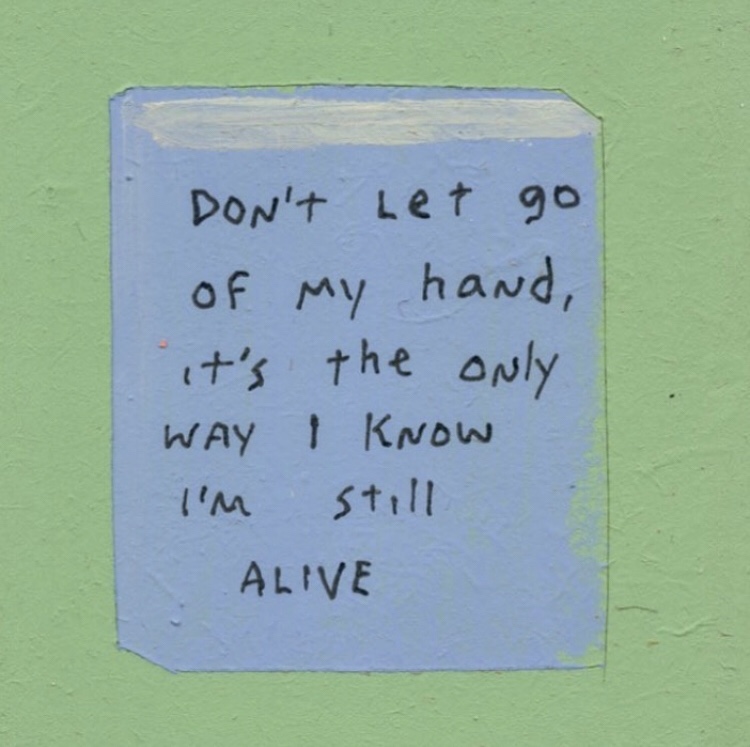 DON't Let go
OF MY hAND,
it's the ONly
WAY I KNOW
I'M still
ALIVE